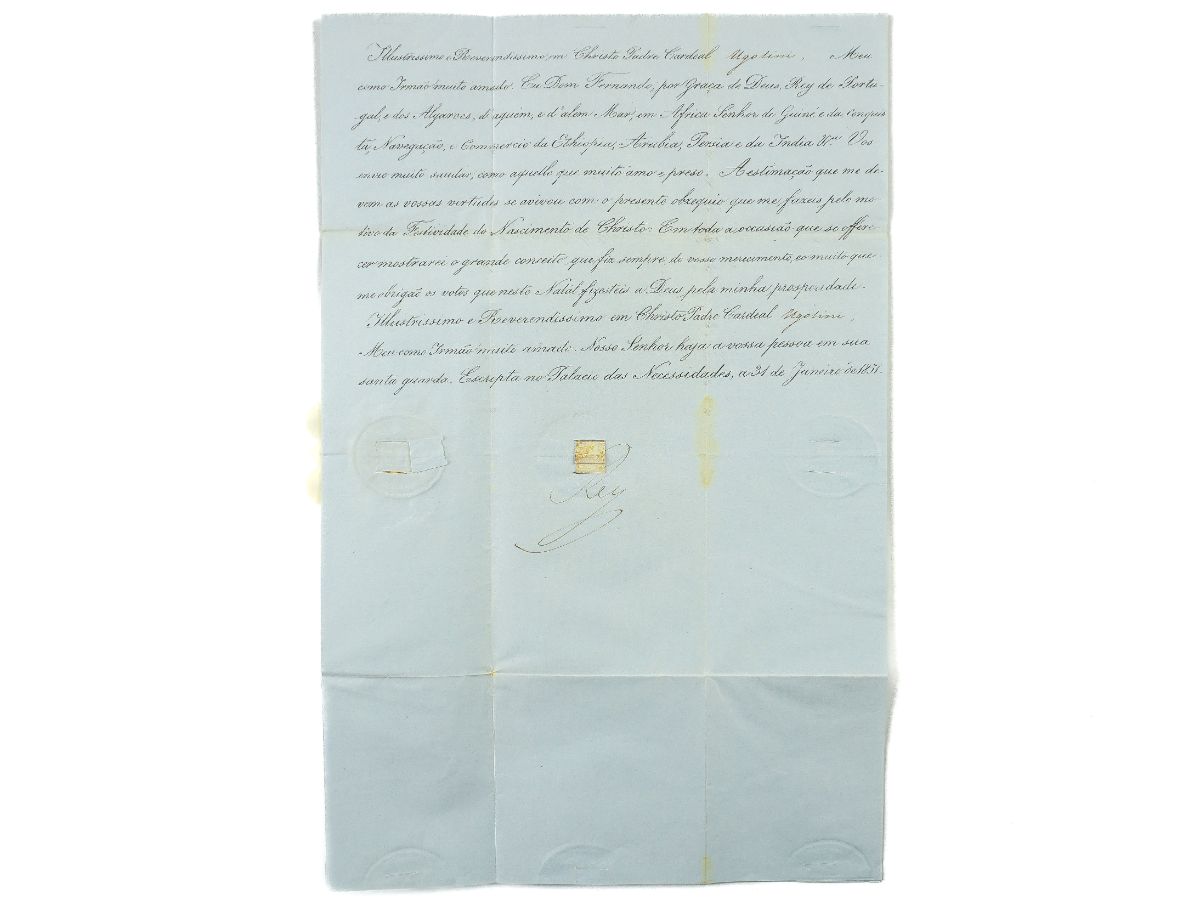 Illustrissimo e Reverendissimo em Christo Padre Cardeal Ugolini, Meu
como Irmão muito amado. Eu Dom Fernando, por Graça de Deus, Rey de Portu-
gal, e dos Algarves, d'aquém, e d'além Mar, em Africa Senhor de Guiné, e da Conquis
ta, Navegação, e Commercio da Ethiopia, Arabia, Persia e da India &.ª Vos
envio muito saudar, como aquelle que muito amo e preso. A estimação que me de-
vem as vossas virtudes se avivou com o presente obzequio que me fazeis pelo mo
tivo da Festividade do Nascimento de Christo: Em toda a occasião que se offere
cer mostrarei o grande conceito, que fiz sempre do vosso merecimento, eo muito que
me obrigão os votos que neste Natal fizesteis a Deus, pela minha prosperidade.
Illustrissimo e Reverendissimo em Christo Padre Cardeal Ugolini,
Meu como Irmão muito amado. Nosso Senhor haja a vossa pessoa em sua
santa guarda. Escripta no Palacio das Necessidades, a 31 de Janeiro de
Rey